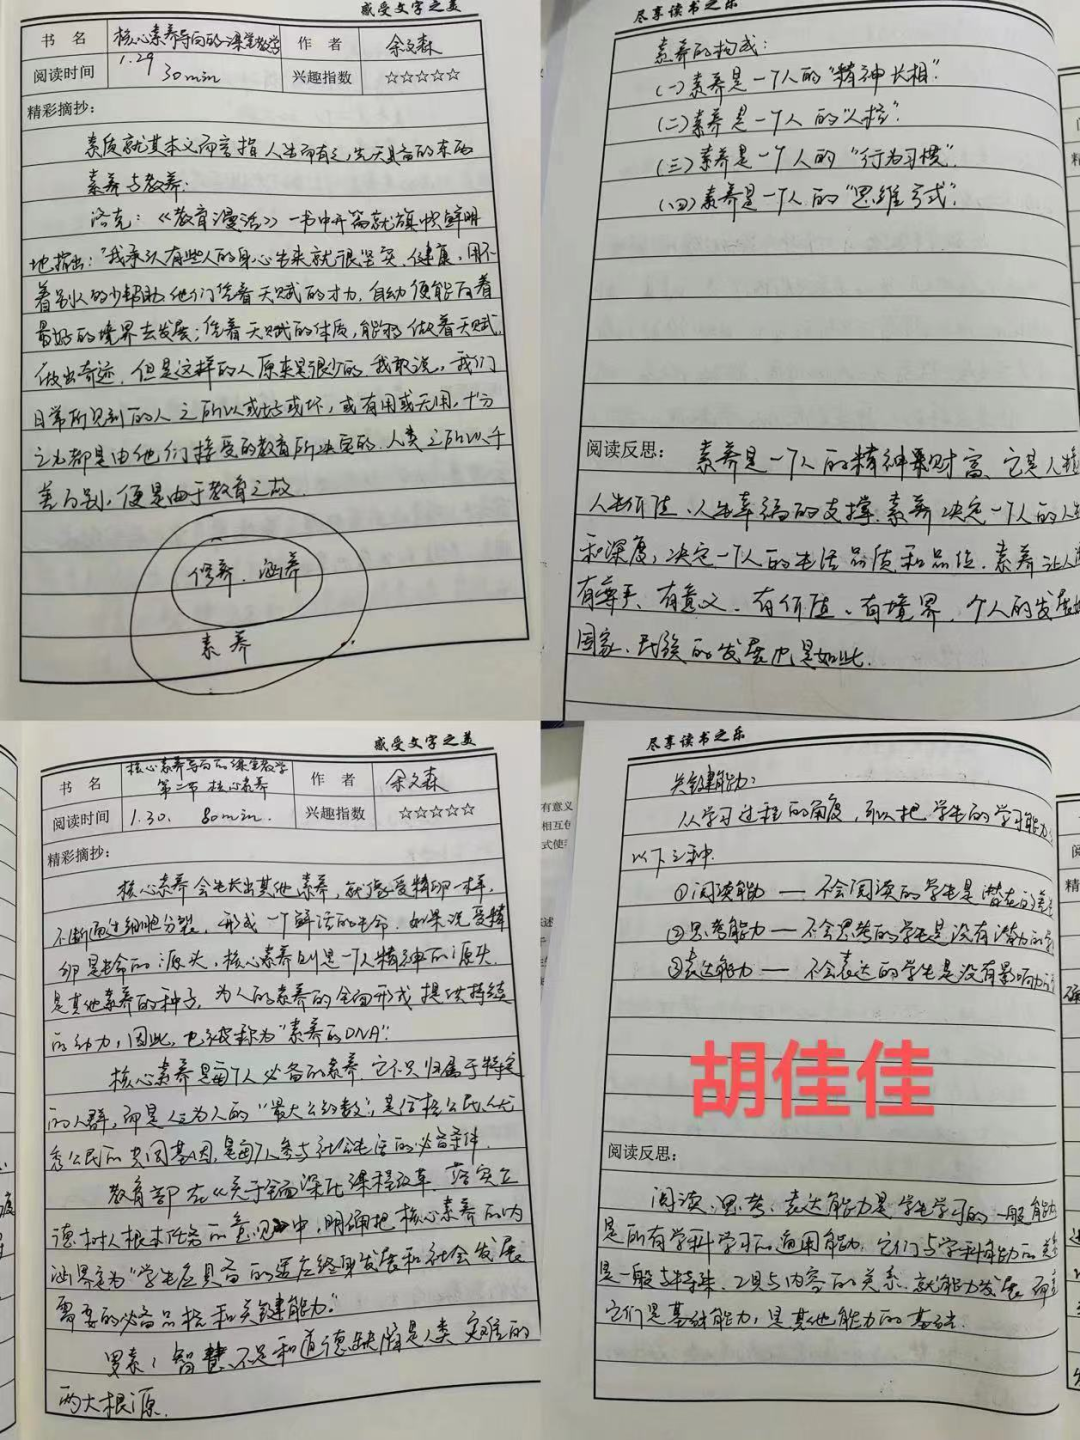 感受文字之美
书 名 核心素养导向的课堂教学 作 者 余文森
阅读时间 1.29 30min 兴趣指数 ☆☆☆☆☆
精彩摘抄：
素质就其本义而言指人生而有之,先天具备的东西
素养与教养:
洛克：《教育漫话》一书中开篇就旗帜鲜明
地指出：“我承认有些人的身心生来就很坚实、健康，用不
着别人的多少帮助,他们凭着天赋的才力，自幼便能向着
最好的境界去发展；凭着天赋的体质，能够做着天赋,
做出奇迹，但是这样的人原来是很少的,我敢说，我们
日常所见到的人之所以或好或坏，或有用或无用，十分
之九都是由他们接受的教育所决定的.人类之所以千
差万别，便是由于教育之故.
修养、涵养
素养
尽享读书之乐
素养的构成：
(一)素养是一个人的“精神长相”.
(二)素养是一个人的“人格”.
(三)素养是一个人的“行为习惯”.
(四)素养是一个人的“思维方式”.
阅读反思： 素养是一个人的精神财富、它是人
人生价值、人生幸福的支撑.素养决定一个人的人
和深度，决定一个人的生活品质和品位.素养让人
有尊严、有意义、有价值、有境界，个人的发展
国家、民族的发展也是如此.
感受文字之美
书 名 核心素养导向的课堂教学 第二节 核心素养 作 者 余文森
阅读时间 1.30. 80min. 兴趣指数 ☆☆☆☆☆
精彩摘抄：
核心素养会生长出其他素养，就像受精卵一样，
不断通过细胞分裂，形成一个鲜活的生命.如果说受精
卵是生命的源头，核心素养则是一个人精神的源头.
是其他素养的种子，为人的素养的全面形成提供持续
的动力，因此，也被称为“素养的DNA”.
核心素养是每个人必备的素养，它不只归属于特定
的人群，而是人之为人的“最大公约数”，是合格公民、优
秀公民的共同基因,是每个人参与社会生活的必备条件.
教育部在《关于全面深化课程改革 落实立
德树人根本任务的意见》中，明确把核心素养的内
涵界定为“学生应具备的适应终身发展和社会发展
需要的必备品格和关键能力.”
罗素：智慧不足和道德缺陷是人类灾难的
两大根源.
尽享读书之乐
关键能力：
从学习过程的角度，可以把学生的学习能力
以下三种.
①阅读能力 — 不会阅读的学生是潜在的差
②思考能力 — 不会思考的学生是没有潜力的
③表达能力 — 不会表达的学生是没有影响力的
胡佳佳
阅读反思：
阅读、思考、表达能力是学生学习的一般能力
是所有学科学习的通用能力，它们与学科能力的
是一般与特殊、工具与内容的关系.就能力发展而
它们是基础能力，是其他能力的基础.
有意义
相互创
式使